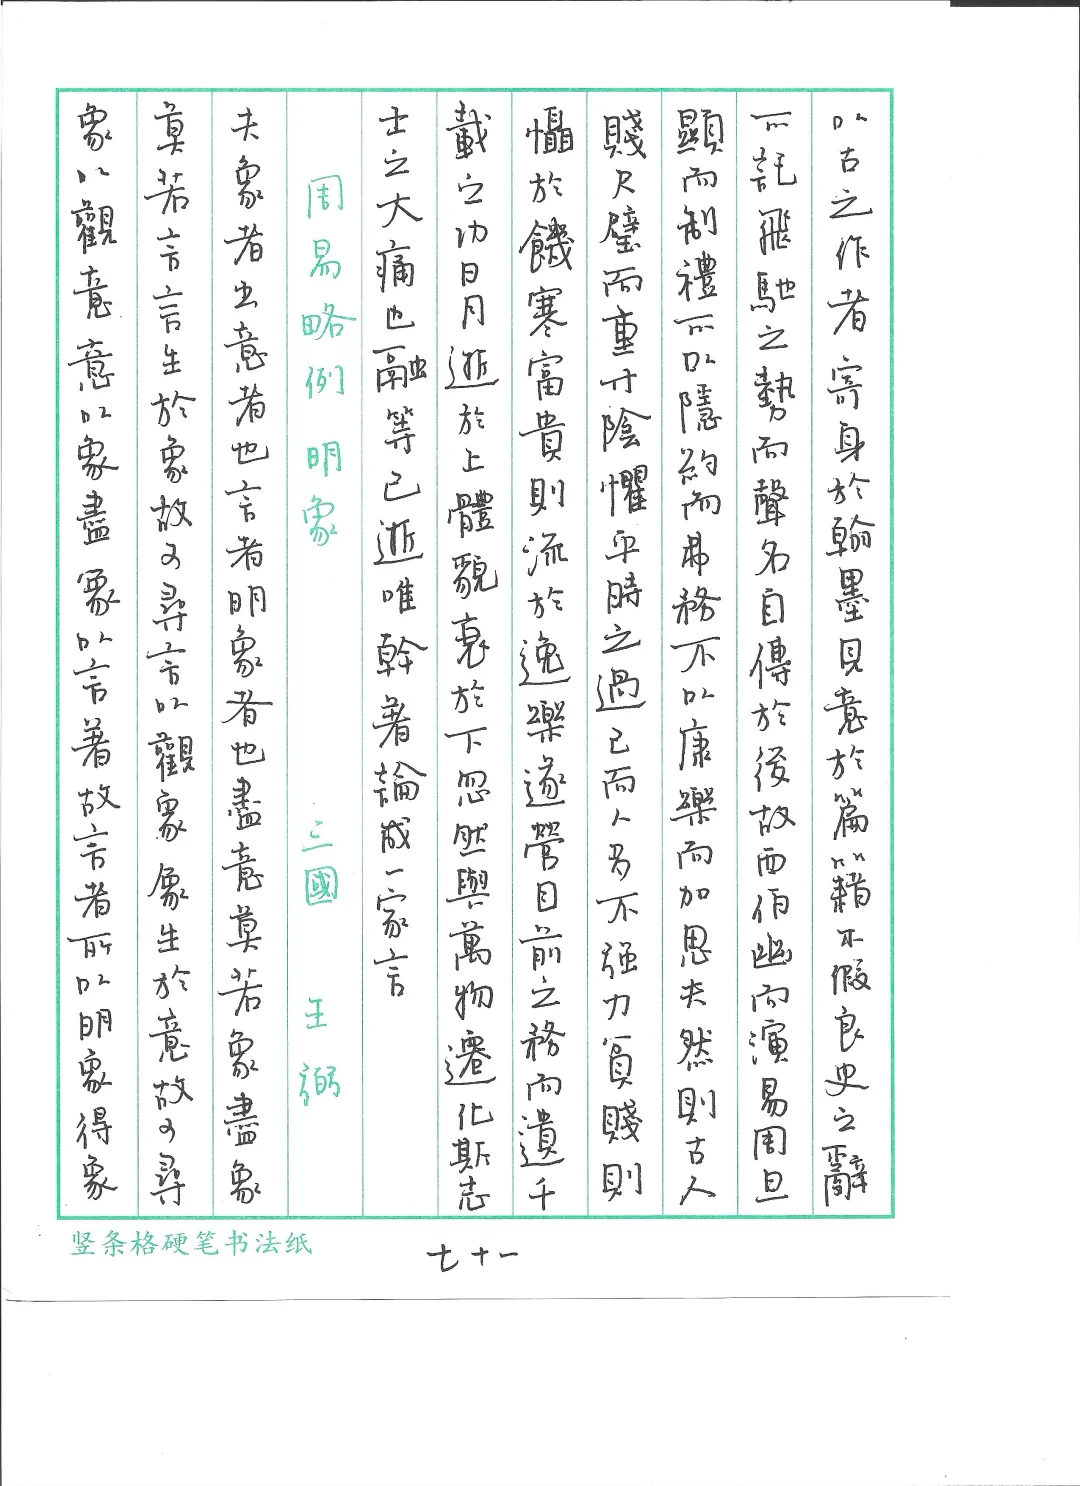 以古之作者寄身於翰墨見意於篇籍不假良史之辭
不託飛馳之勢而聲名自傳於後故西伯幽而演易周旦
顯而制禮不以隱約而弗務不以康樂而加思夫然則古人
賤尺璧而重寸陰懼乎時之過已而人多不强力貧賤則
懾於饑寒富貴則流於逸樂遂營目前之務而遺千
載之功日月逝於上體貌衰於下忽然與萬物遷化斯志
士之大痛也融等已逝唯幹著論成一家言
周易略例 明象 三國 王弼
夫象者出意者也言者明象者也盡意莫若象盡象
莫若言言生於象故可尋言以觀象象生於意故可尋
象以觀意意以象盡象以言著故言者所以明象得象
竖条格硬笔书法纸
七十一